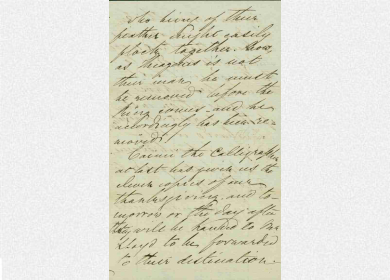 the being of their
feather might easily
flock together. Now,
as Theagenes is not
their man he must
be removed before the
King comes - and he
accordingly has been re-
moved.
Cainer the Calligrapher
at last has given us the
eleven copies of our
thanksgiving and to-
morrow or the day after
they will be handed to Mr
Lloyd to be forwarded
to their destination.